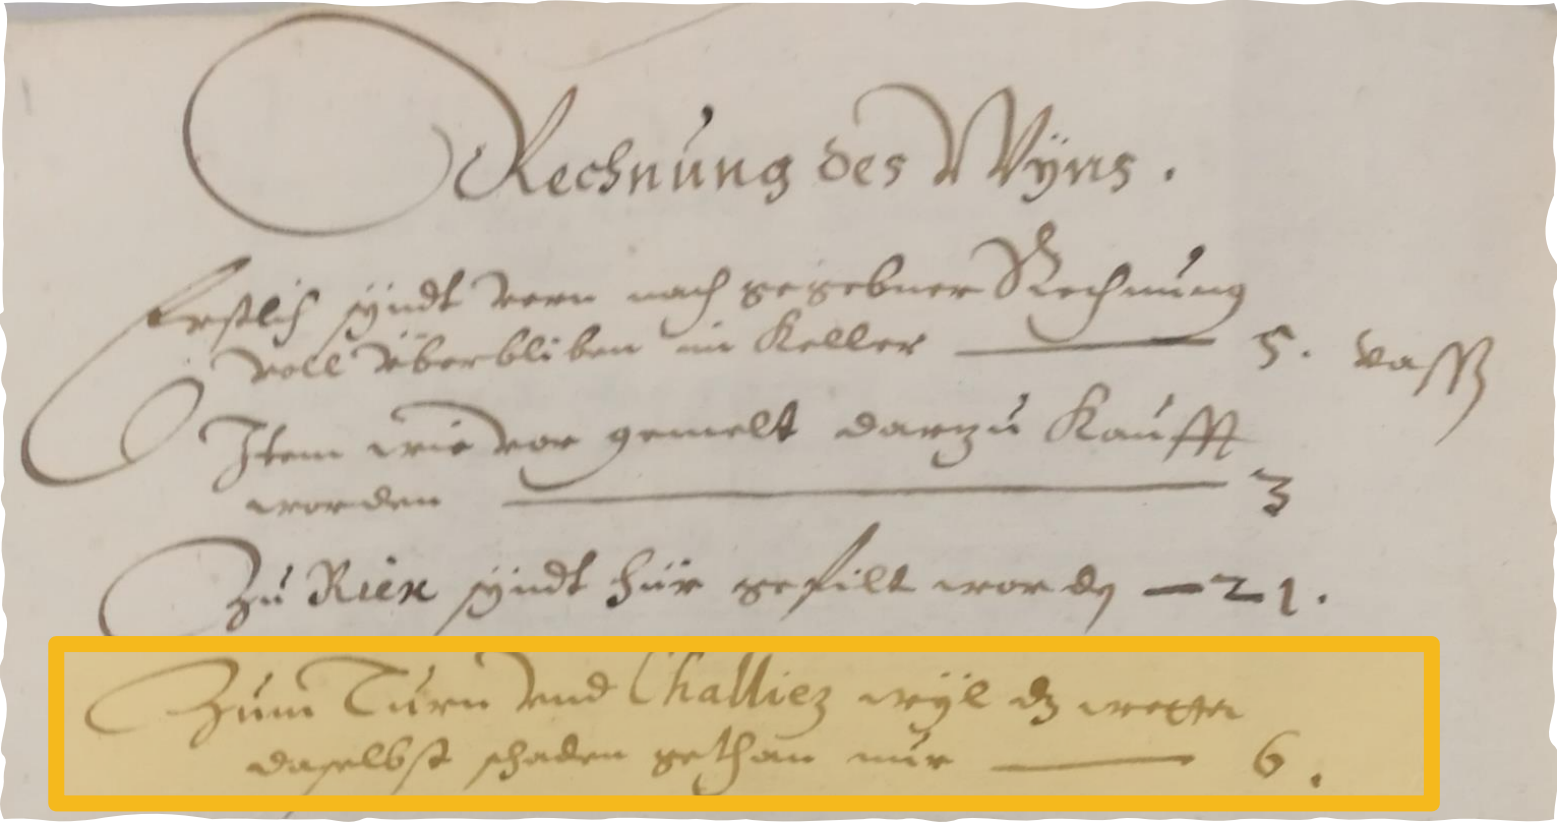 Rechnung des Wÿns.
Erstlich sÿndt vern nach gegebner Rechnung
voll überbliben im Keller 5. vassz
Item wie vor gemelt darzu Kaufft
worden 3
Zu Riex sÿndt hür gefilt worden 21.
Zum Turn vnd Challiez wÿl dz wetter
daselbst schaden gethan nur 6.